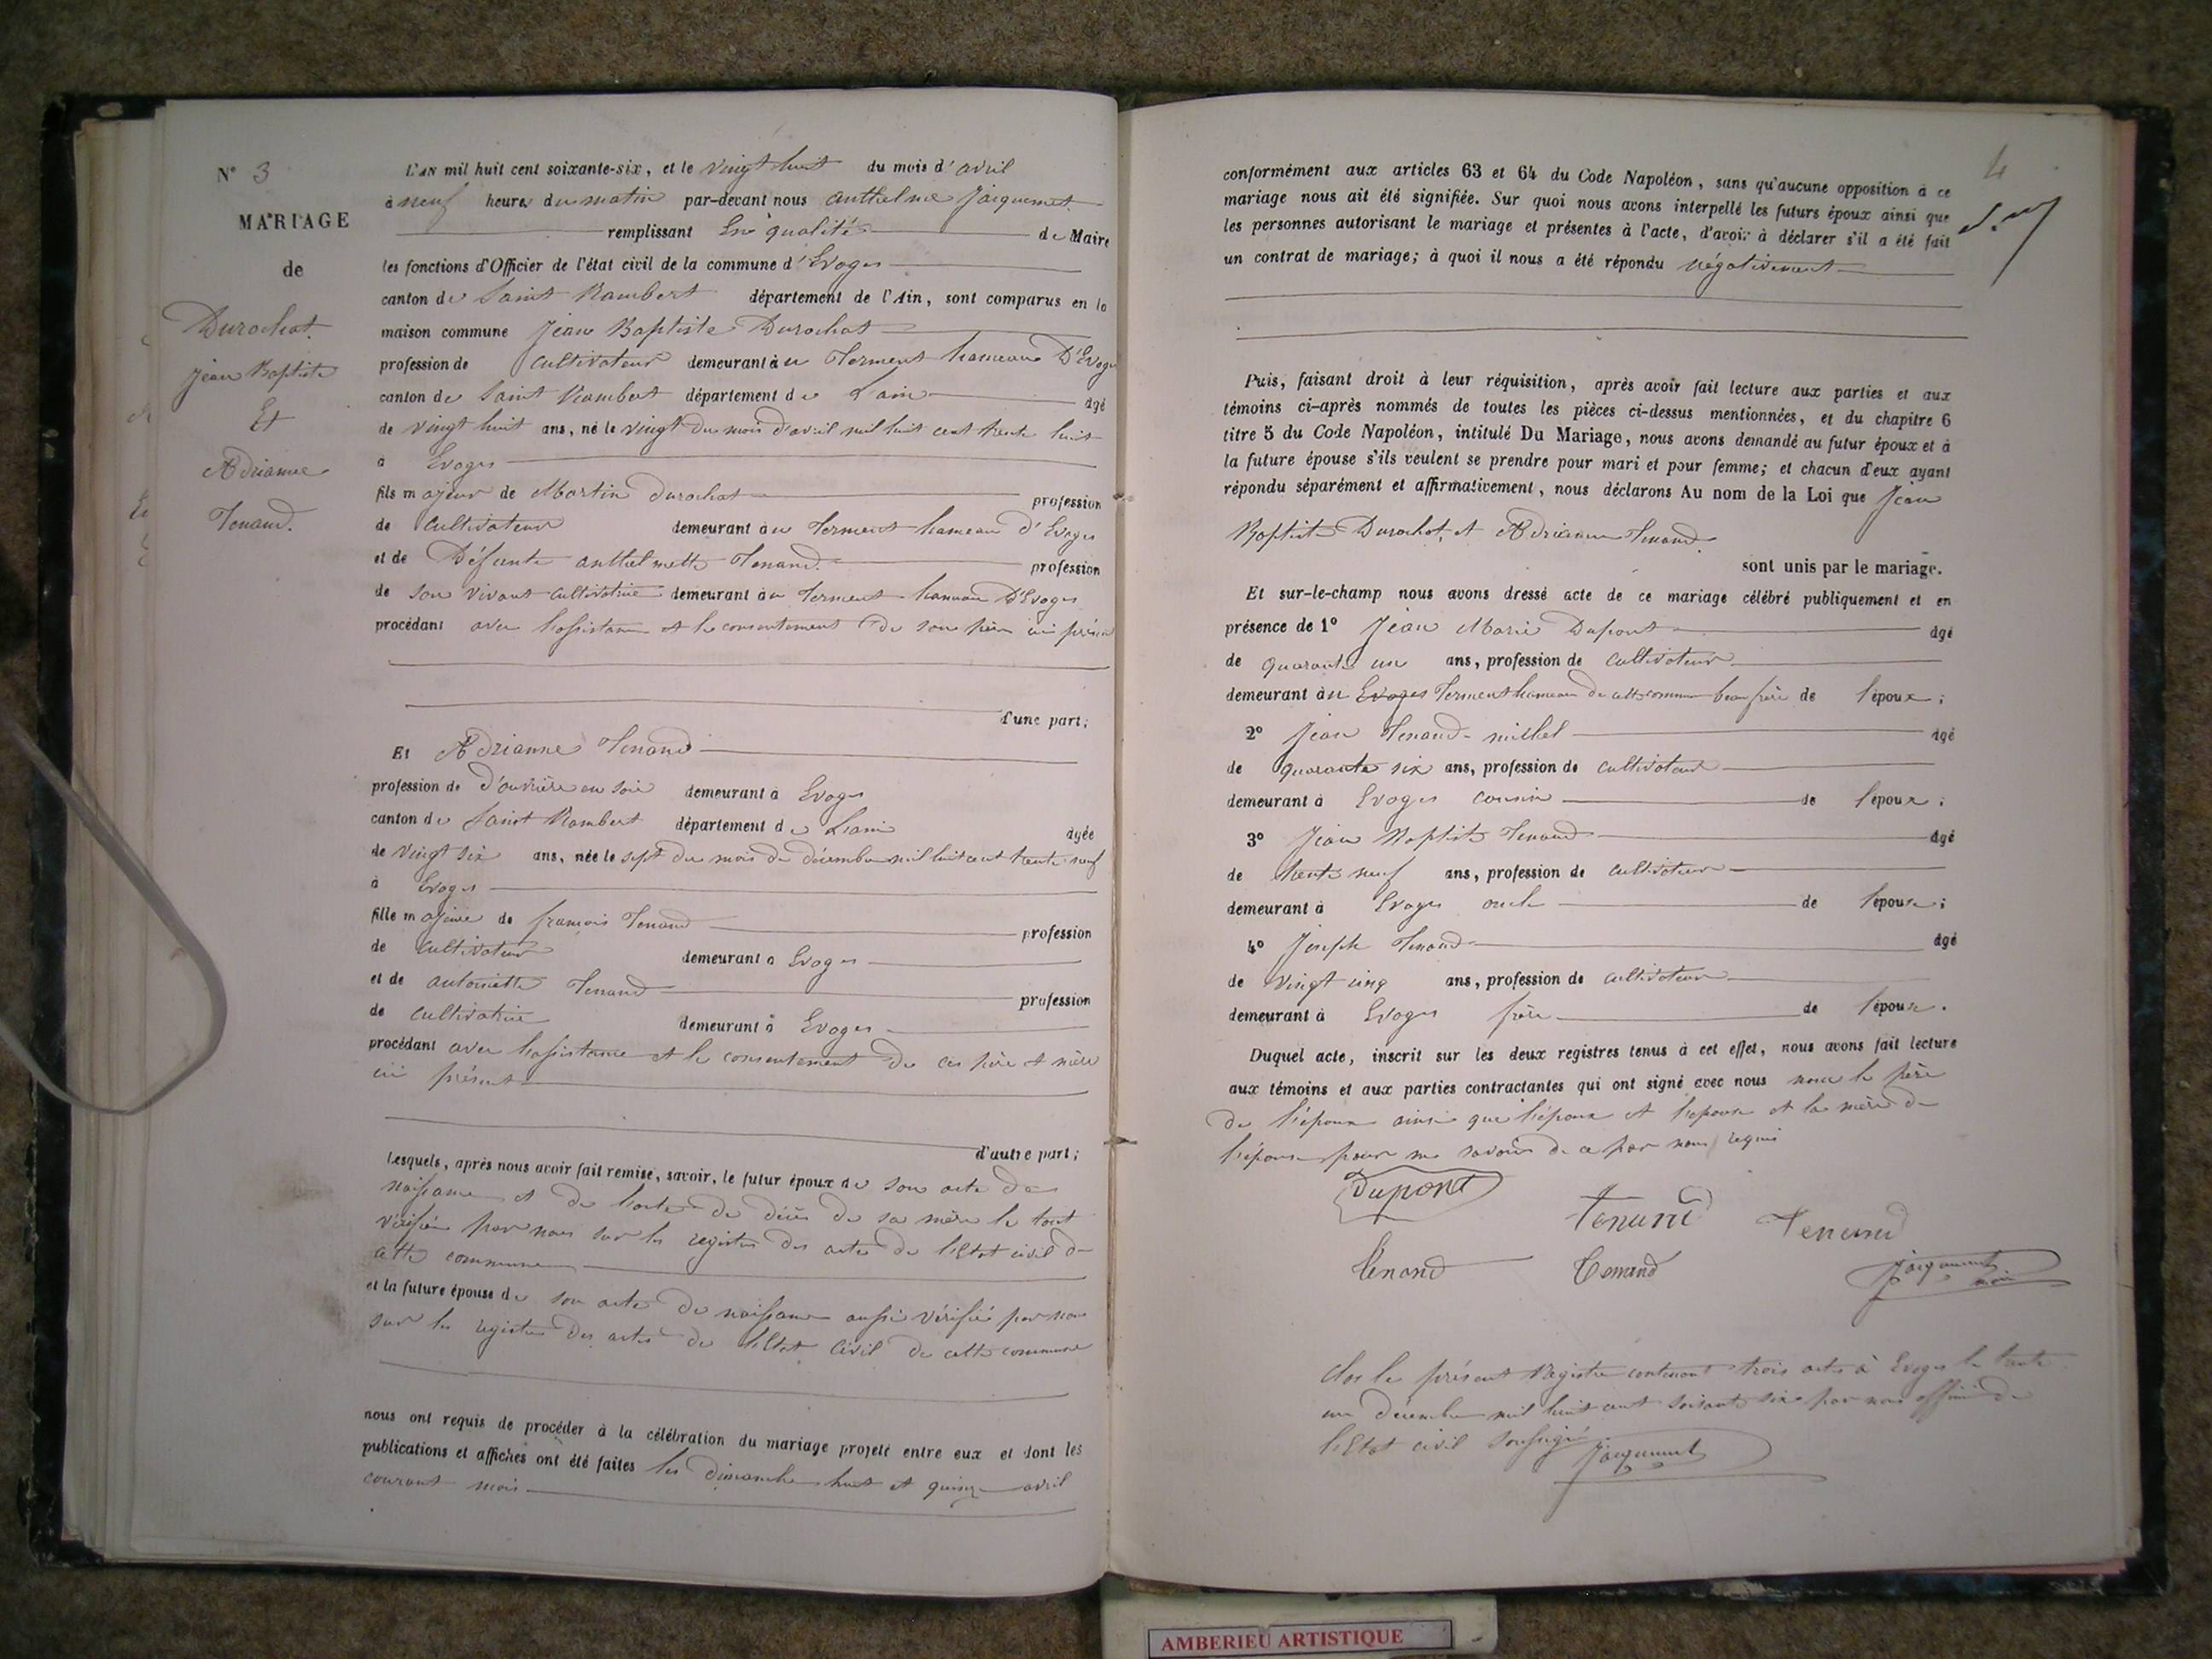 N° 3
MARIAGE
de
Durochat
Jean Baptiste
Et
Adrianne
Tenand.
L'AN mil huit cent soixante-six, et le vingt huit du mois d'avril
à neuf heures du matin par-devant nous anthelme Jacquemet
remplissant En qualité de Maire
les fonctions d'Officier de l'état civil de la commune d'Evoges
canton de Saint Rambert département de l'Ain, sont comparus en la
maison commune Jean Baptiste Durochat
profession de Cultivateur demeurant à au Terment hameau D'Evoges
canton de Saint Rambert département de L'ain âgé
de vingt huit ans, né le vingt du mois d'avril mil huit cent trente huit
à Evoges
fils majeur de Martin Durochat profession
de Cultivateur demeurant à au Terment hameau d'Evoges
et de Défunte anthelmette Tenand profession
de son vivant cultivatrice demeurant à au Terment hameau D'Evoges
procédant avec l'assistance et le consentement de son père ici présent
d'une part;
Et Adrianne Tenand
profession de d'ouvrière en soie demeurant à Evoges
canton de Saint Rambert département de L'ain âgée
de vingt six ans, née le sept du mois de décembre mil huit cent trente neuf
à Evoges
fille majeure de françois Tenand profession
de cultivateur demeurant à Evoges
et de antoinette Tenand profession
de cultivatrice demeurant à Evoges
procédant avec l'assistance et le consentement de ces père et mère
ici présent
d'autre part;
Lesquels, après nous avoir fait remise, savoir, le futur époux de son acte de
naissance et de l'acte de décès de sa mère le tout
vérifiés par nous sur les registres des actes de l'Etat civil de
cette commune
et la future épouse de son acte de naissance aussi vérifié par nous
sur les registres des actes de l'Etat Civil de cette commune
nous ont requis de procéder à la célébration du mariage projeté entre eux et dont les
publications et affiches ont été faites les dimanche huit et quinze avril
courant mois
4
conformément aux articles 63 et 64 du Code Napoléon, sans qu'aucune opposition à ce
mariage nous ait été signifiée. Sur quoi nous avons interpellé les futurs époux ainsi que
les personnes autorisant le mariage et présentes à l'acte, d'avoir à déclarer s'il a été fait
un contrat de mariage; à quoi il nous a été répondu négativement
Puis, faisant droit à leur réquisition, après avoir fait lecture aux parties et aux
témoins ci-après nommés de toutes les pièces ci-dessus mentionnées, et du chapitre 6
titre 5 du Code Napoléon, intitulé Du Mariage, nous avons demandé au futur époux et à
la future épouse s'ils veulent se prendre pour mari et pour femme; et chacun d'eux ayant
répondu séparément et affirmativement, nous déclarons Au nom de la Loi que Jean
Baptiste Durochat et Adrianne Tenand
sont unis par le mariage.
Et sur-le-champ nous avons dressé acte de ce mariage célébré publiquement et en
présence de 1° Jean Marie Dupont âgé
de quarante un ans, profession de cultivateur
demeurant à au Evoges Terment hameau de cette commune beau frère de l'époux;
2° Jean Tenand-michel âgé
de quarante six ans, profession de cultivateur
demeurant à Evoges cousin de l'époux;
3° Jean Baptiste Tenand âgé
de trente neuf ans, profession de cultivateur
demeurant à Evoges oncle de l'épouse;
4° Joseph Tenand âgé
de vingt cinq ans, profession de cultivateur
demeurant à Evoges frère de l'épouse.
Duquel acte, inscrit sur les deux registres tenus à cet effet, nous avons fait lecture
aux témoins et aux parties contractantes qui ont signé avec nous non le père
de l'époux ainsi que l'époux et l'epouse et la mère de
l'épouse pour ne savoir de ce par nous requis
Dupont
Tenand Tenand
Tenand Tenand Jacquemet maire
Clos le présent Registre contenant trois actes à Evoges le trente
un décembre mil huit cent soixante six par nous officier de
l'Etat civil soussigné.
Jacquemet
AMBERIEU ARTISTIQUE